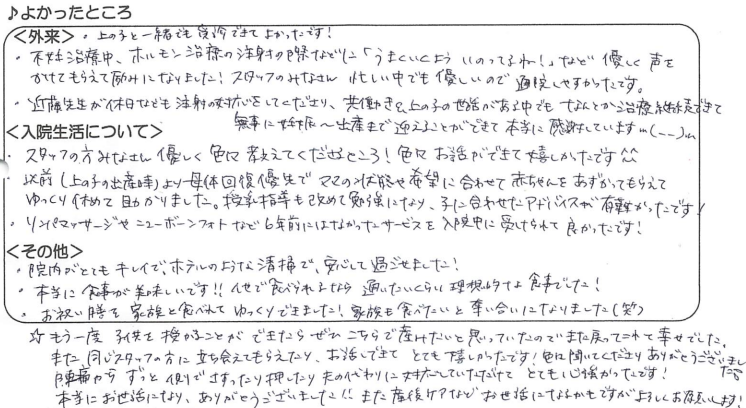 ♪よかったところ
<外来>・上の子と一緒でも受診できてよかったです!
・不妊治療中、ホルモン治療の注射の際などに「うまくいくよういのってるね!」など 優しく声を
かけてもらえて励みになりました!スタッフのみなさん 忙しい中でも優しいので通院しやすかったです。
・近藤先生が休日なども注射の対応をしてくださり、共働き&上の子の世話がある中でも なんとか治療継続できて
無事に妊娠〜出産まで迎えることができて本当に感謝していますm(__)m
<入院生活について>
・スタッフの方みなさん優しく色々教えてくださるところ!色々お話ができて嬉しかったです^^
・以前(上の子の出産時)より母体回復優先で ママの状態や希望に合わせて赤ちゃんをあずかってもらえて
ゆっくり休めて助かりました。授乳指導も改めて勉強になり、子に合わせたアドバイスが有難かったです!
・リンパマッサージやニューボーンフォトなど6年前にはなかったサービスを入院中に受けられて良かったです!
<その他>
・院内がとてもキレイで、ホテルのような清掃で、安心して過ごせました!
・本当に食事が美味しいです!!他で食べられるなら通いたいくらい理想的な食事でした!
・お祝い膳を家族と食べれてゆっくりできました!家族も食べたいと奪い合いになりました(笑)
☆もう一度子供を授かることができたらぜひこちらで産みたいと思っていたのでまた戻ってこれて幸せでした。
また、同じスタッフの方に立ち会えてもらえたり、お話しできて とても嬉しかったです!色々聞いてくださりありがとうございました
陣痛から ずっと側でさすったり押したり夫の代わりに対応していただけて とても心強かったです!
本当にお世話になり、ありがとうございました!!また産後ケアなどお世話になるかもですがよろしくお願いします!